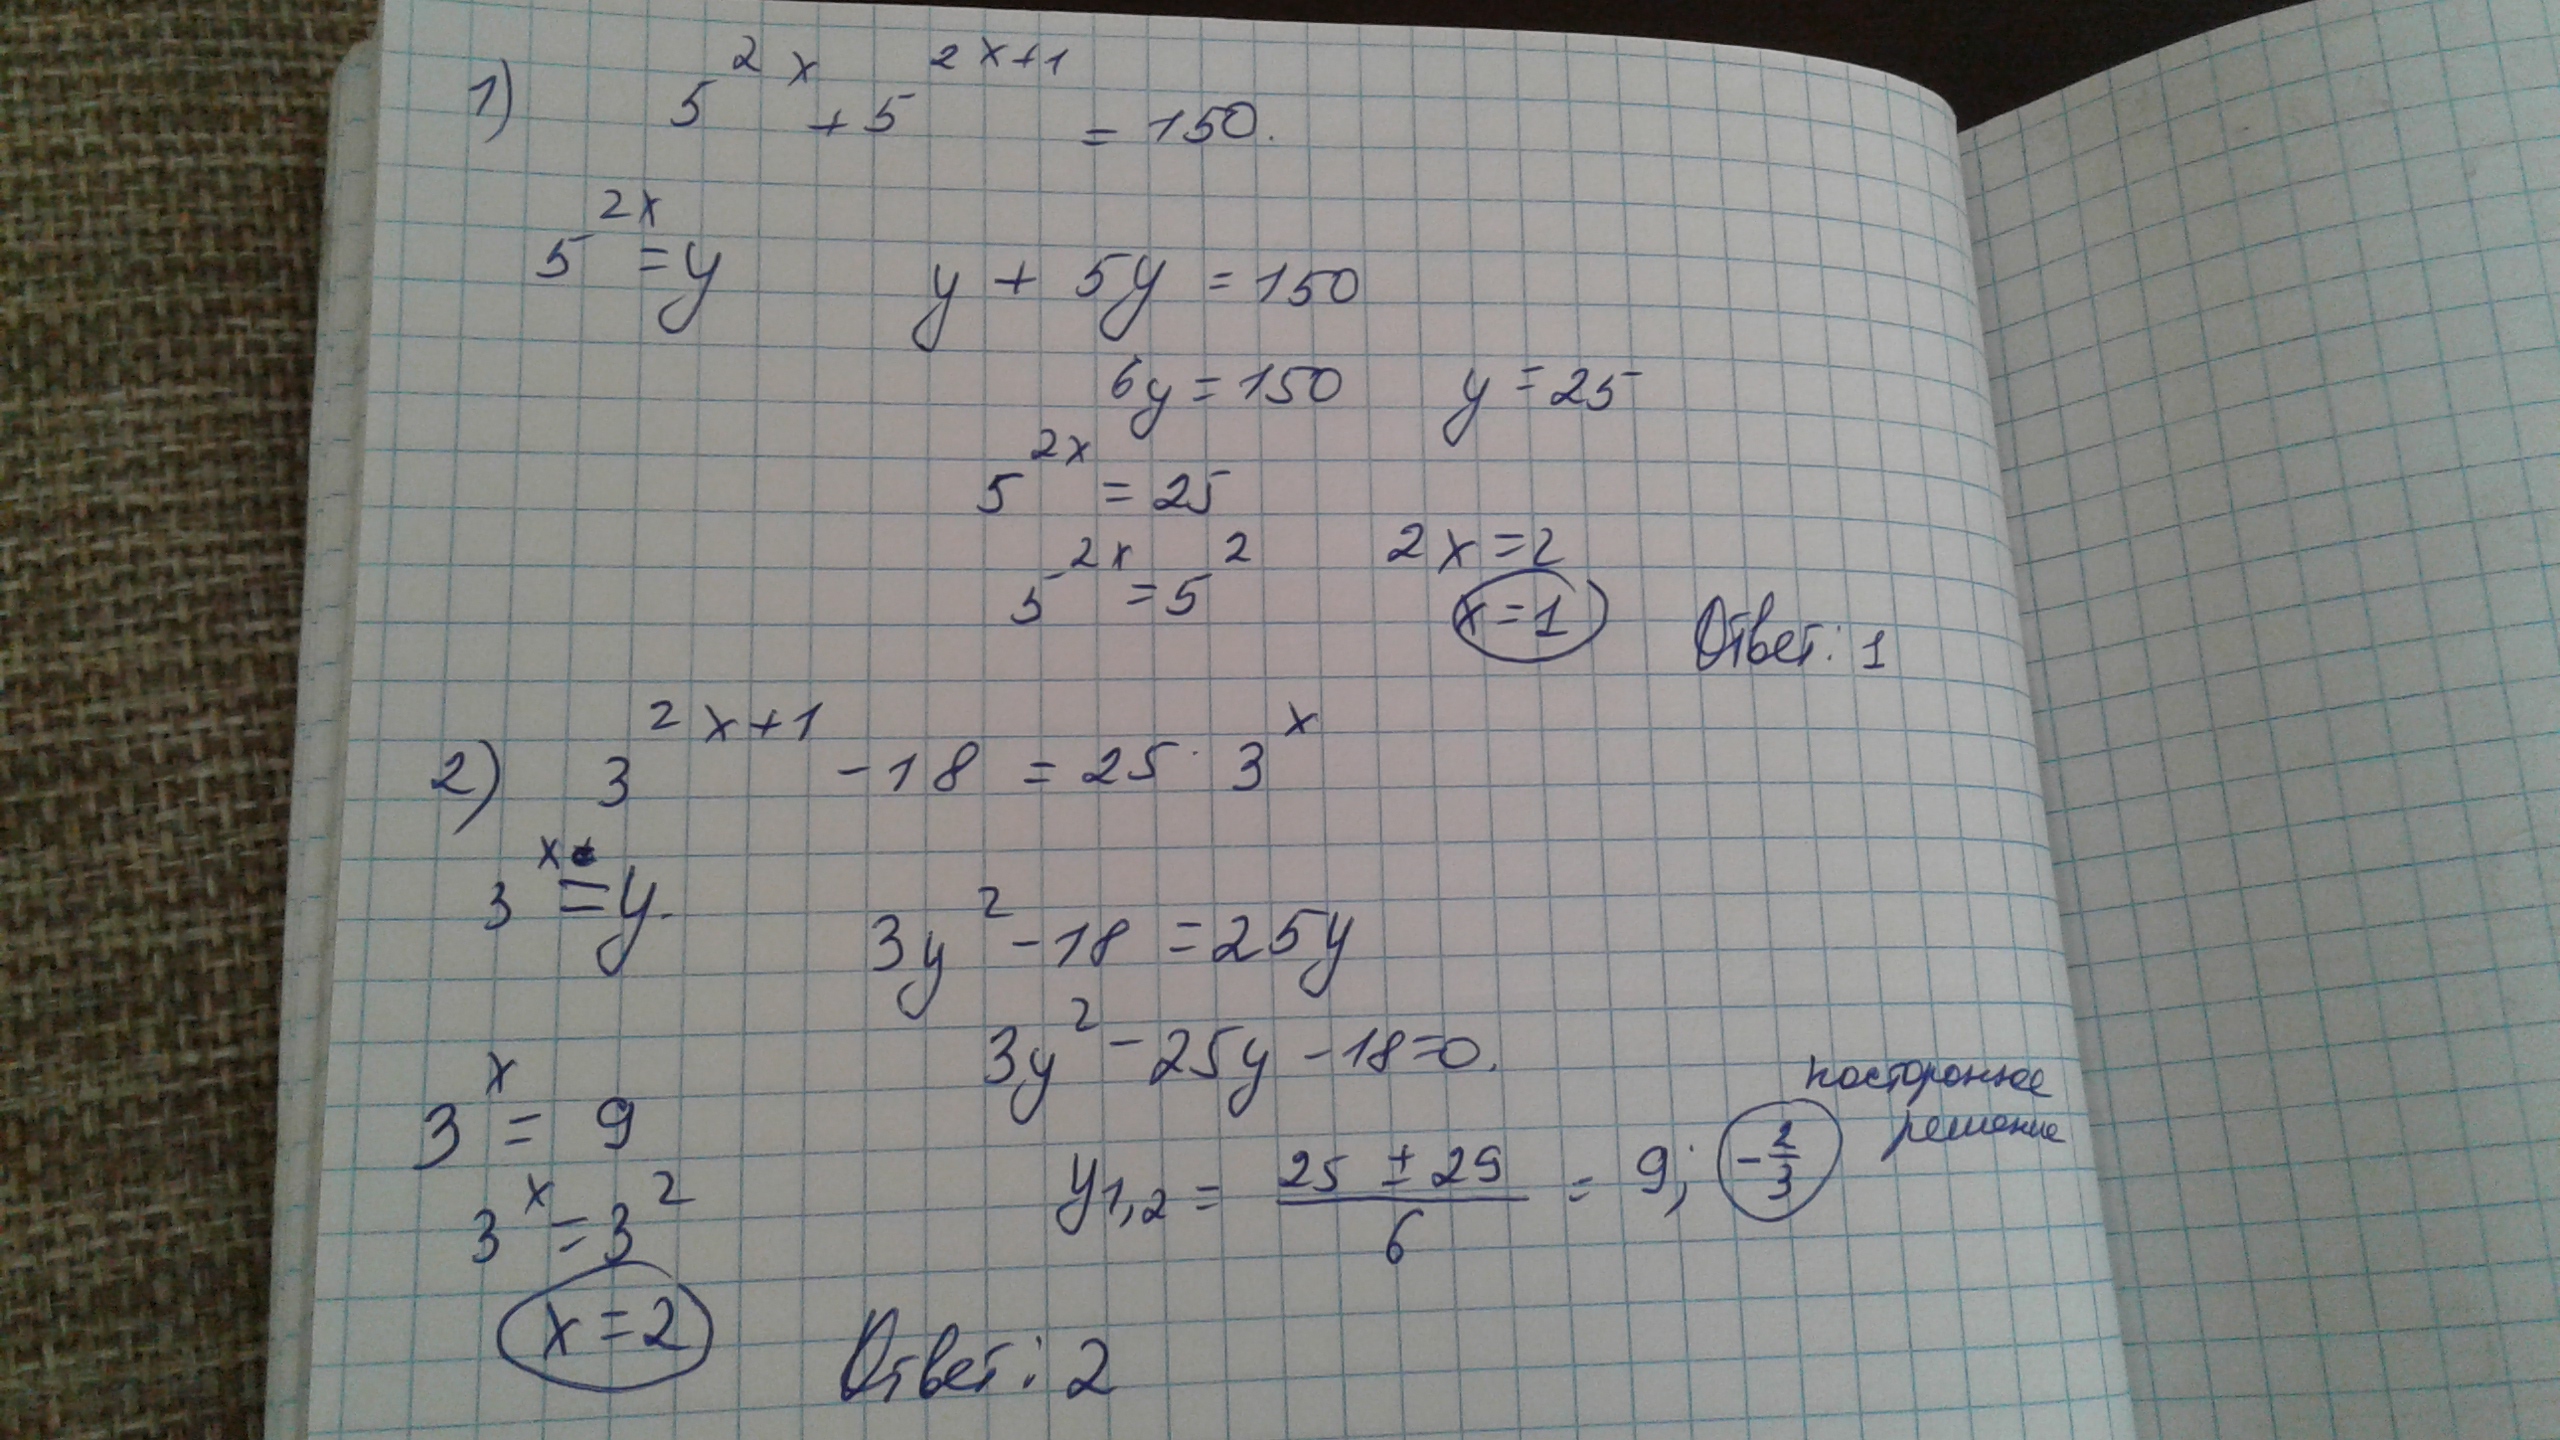 1) 5^{2x} + 5^{2x+1} = 150.
5^{2x} = y y + 5y = 150
6y = 150 y = 25
5^{2x} = 25
5^{2x} = 5^2 2x = 2
x = 1 Ответ: 1
2) 3^{2x+1} - 18 = 25 · 3^x
3^x = y. 3y^2 - 18 = 25y
3y^2 - 25y - 18 = 0.
3^x = 9 y_{1,2} = \frac{25 ± 29}{6} = 9; -\frac{2}{3} постороннее решение
3^x = 3^2
x = 2 Ответ: 2